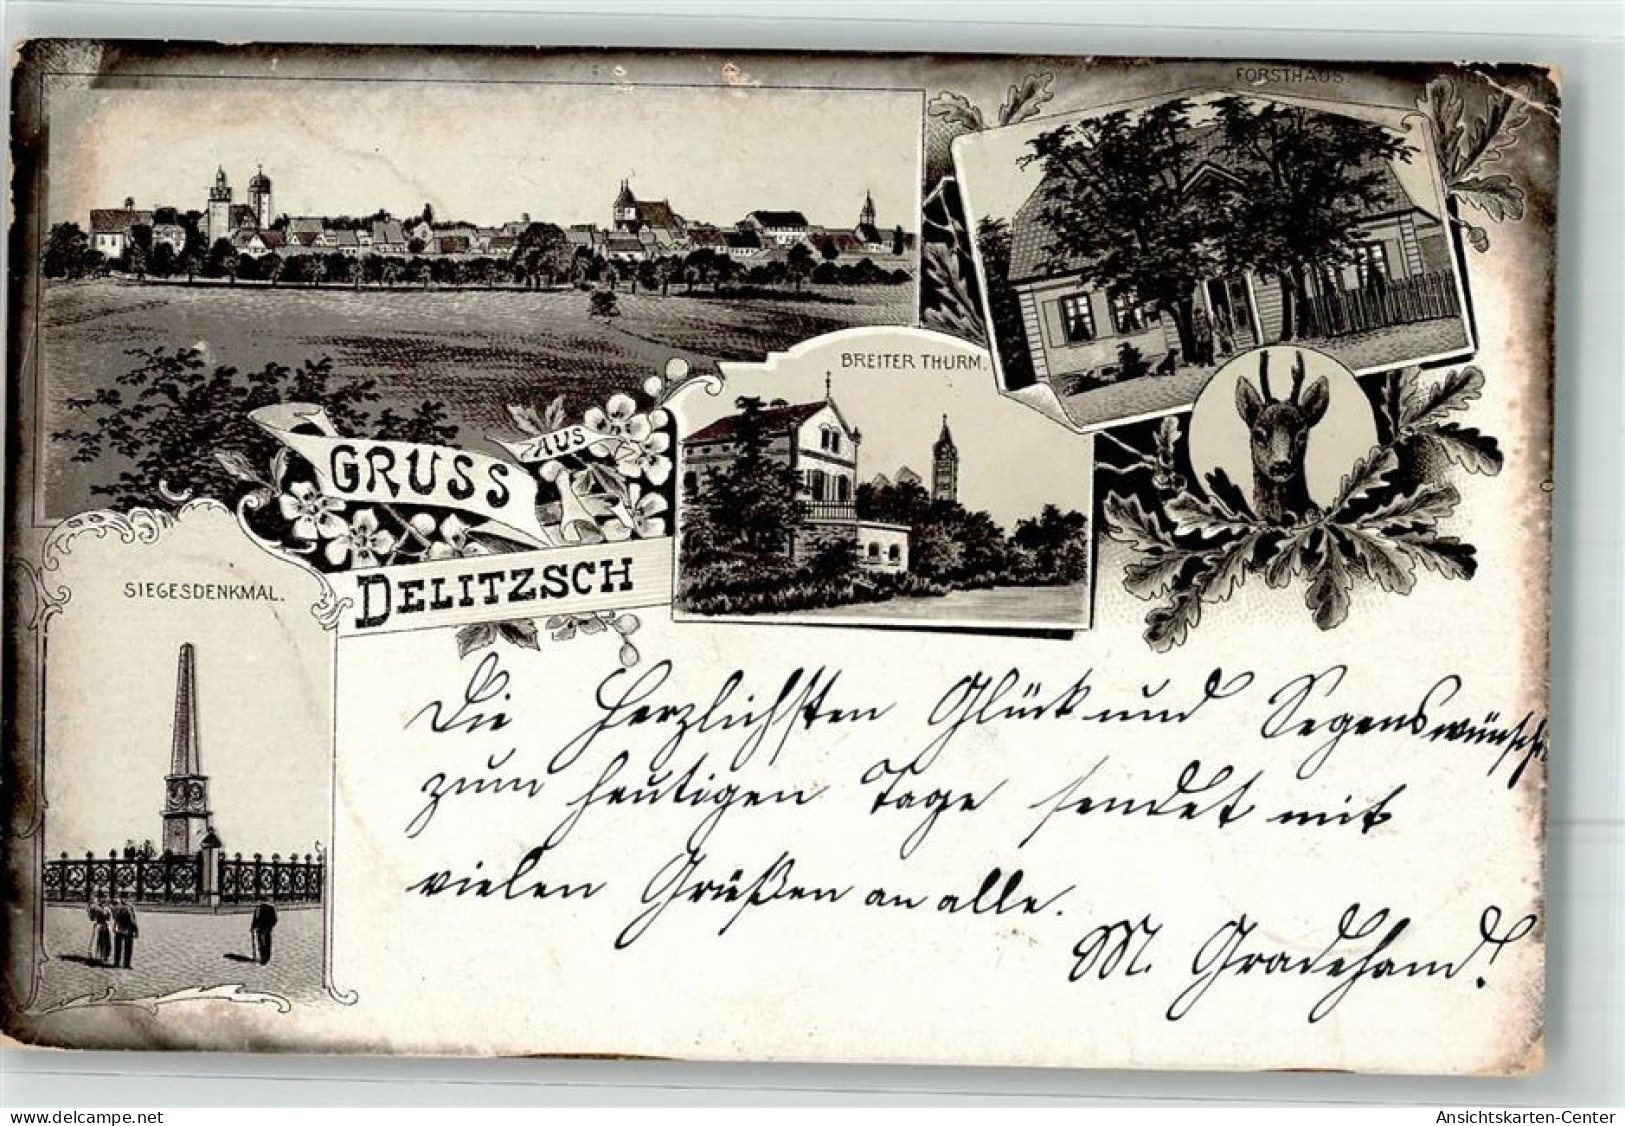 FORSTHAUS.
BREITER THURM.
GRUSS
AUS
DELITZSCH
SIEGESDENKMAL.
Die Herzlichsten Glück und Segenswünsche
zum heutigen Tage sendet mit
vielen Grüßen an alle.
M. Gradehand!
delcampe.net
Ansichtskarten-Center